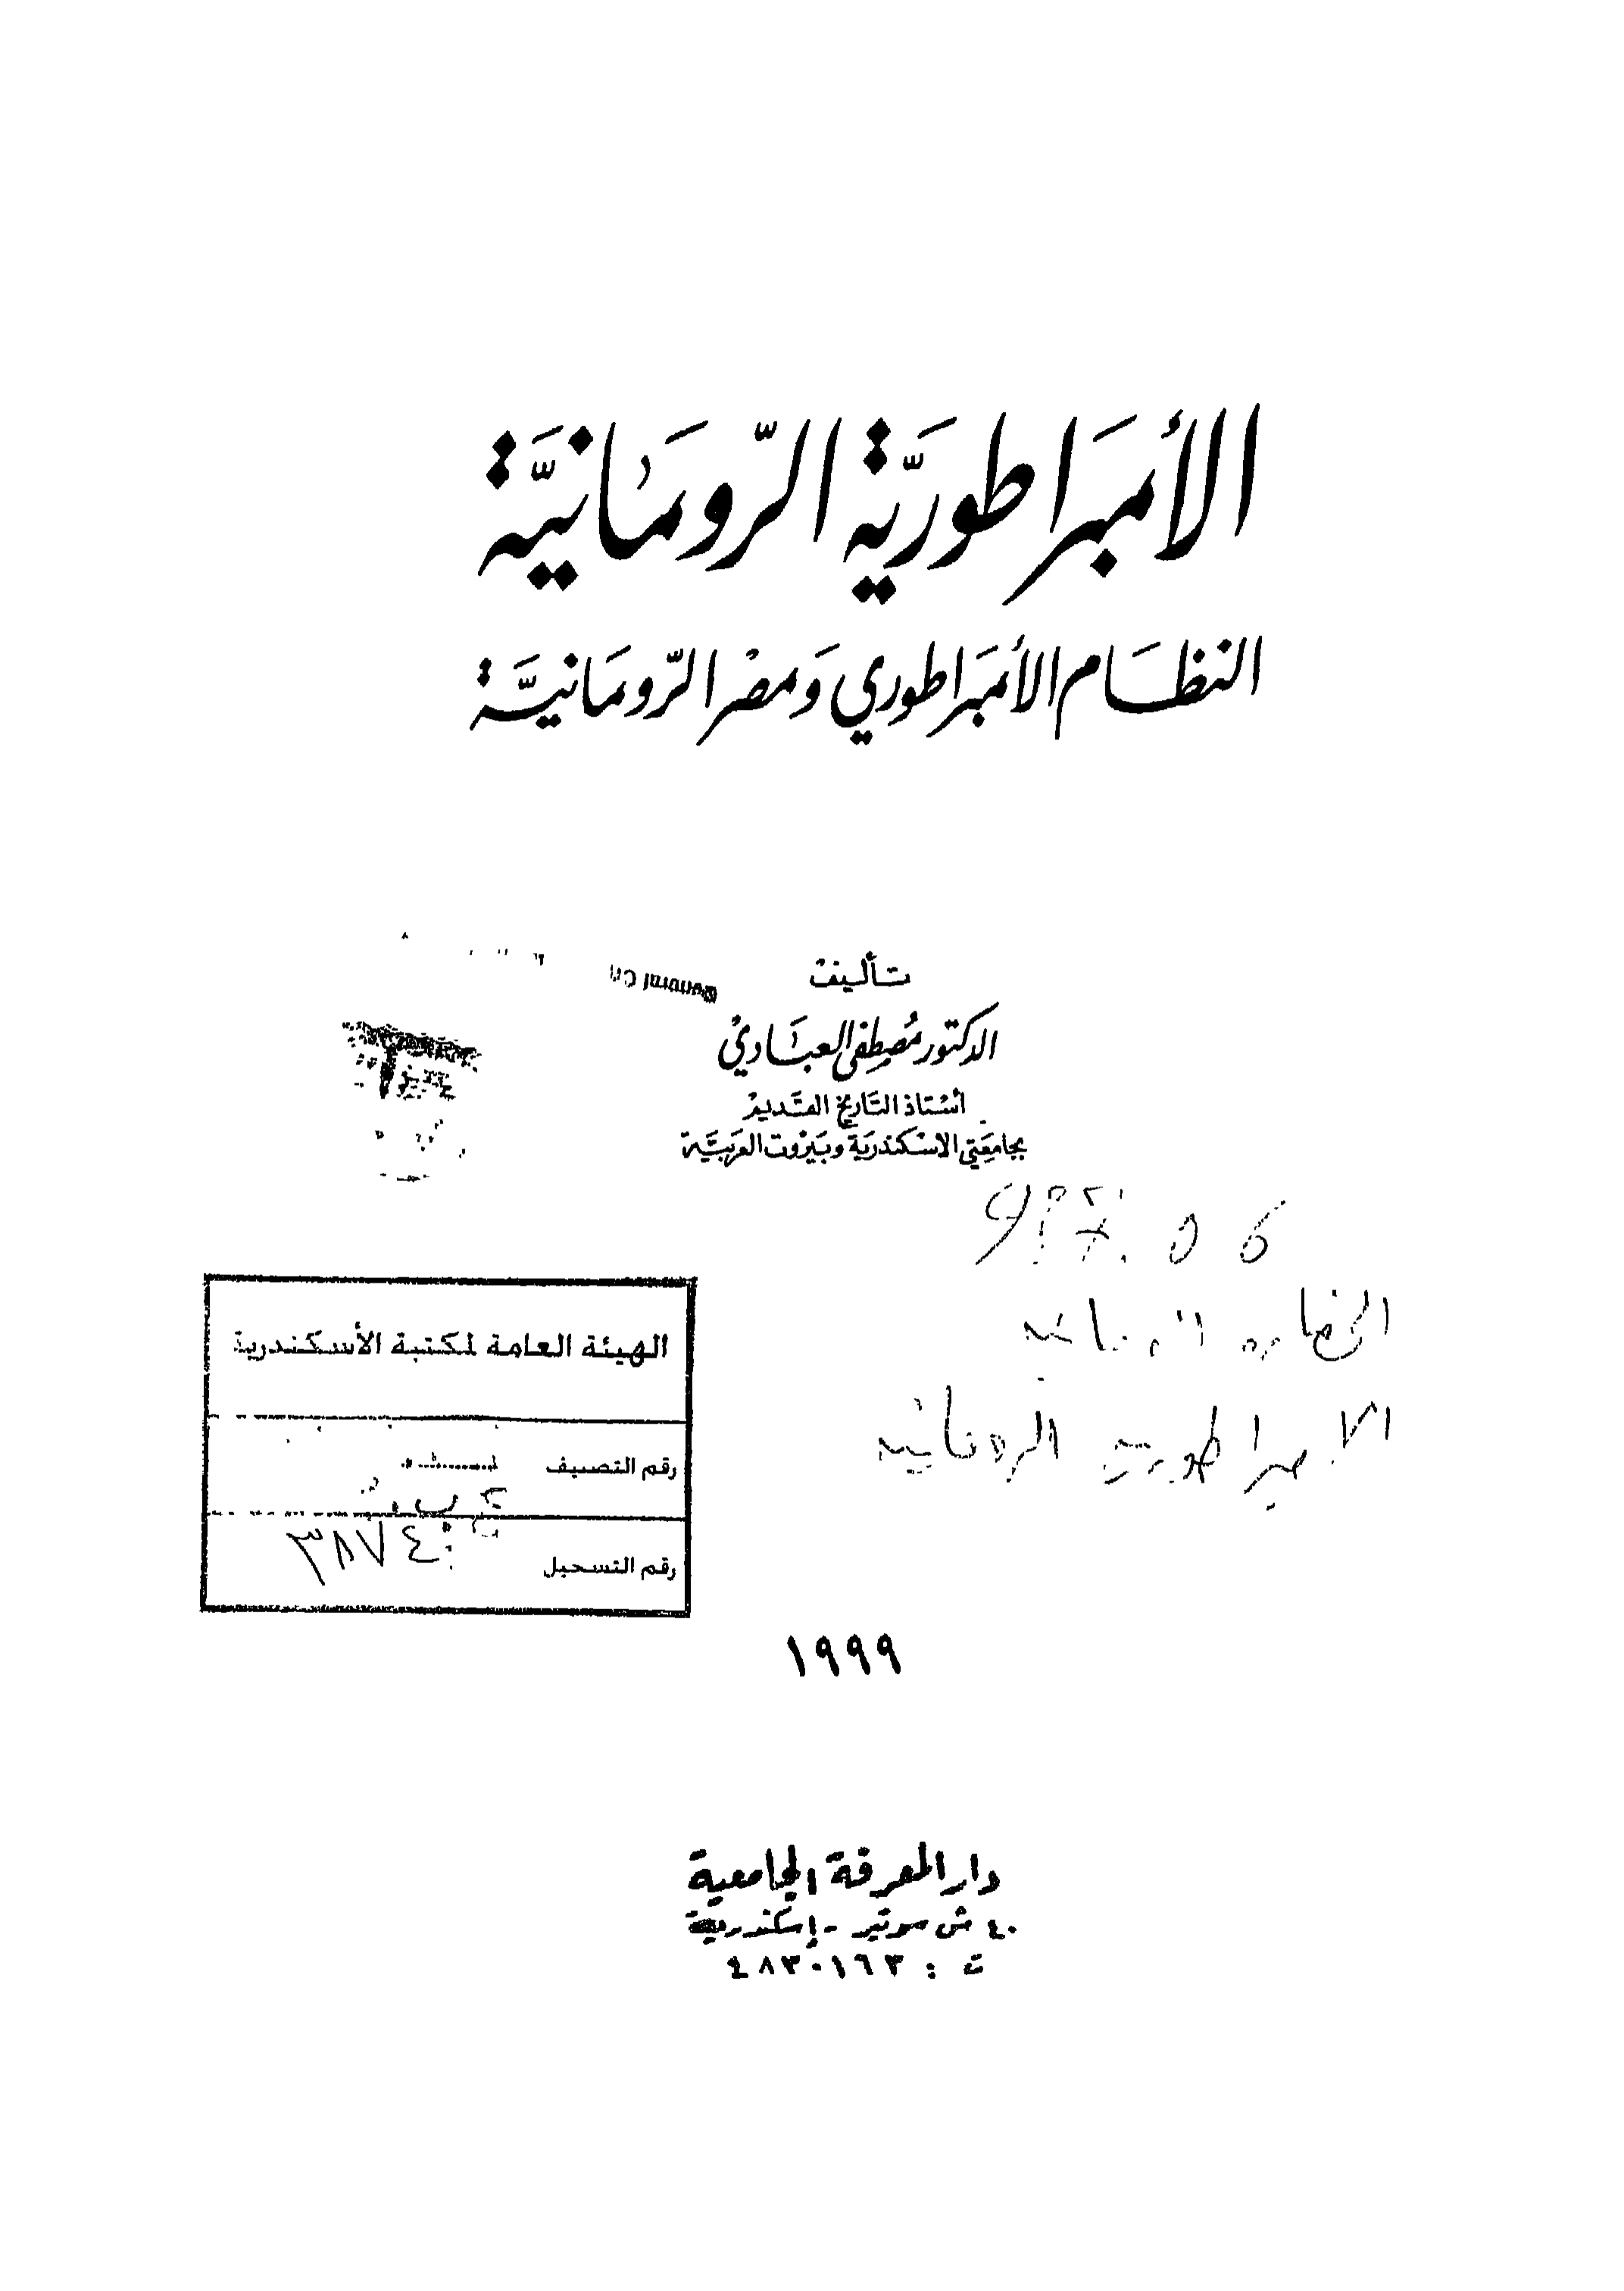 الأمبراطوريَّة الرّومَانيَّة
النظَام الأمبَراطوري وَمصْر الرّومَانيَّة
تأليف
الدكتور مُصطفى العبَادي
أسْتاذ التَاريخ القَديم
بجامعَتي الاسْكندريَة وبَيْروت العَربيَّة
937.06
الحضارة الرومانية
الامبراطورية الرومانية
الهيئة العامة لمكتبة الأسكندرية
رقم التصنيف
رقم التسجيل ٣٨٧٤
١٩٩٩
دار المعرفة الجامعية
٤٠ ش سوتير - إسكندرية
ت : ٤٨٣٠١٦٣